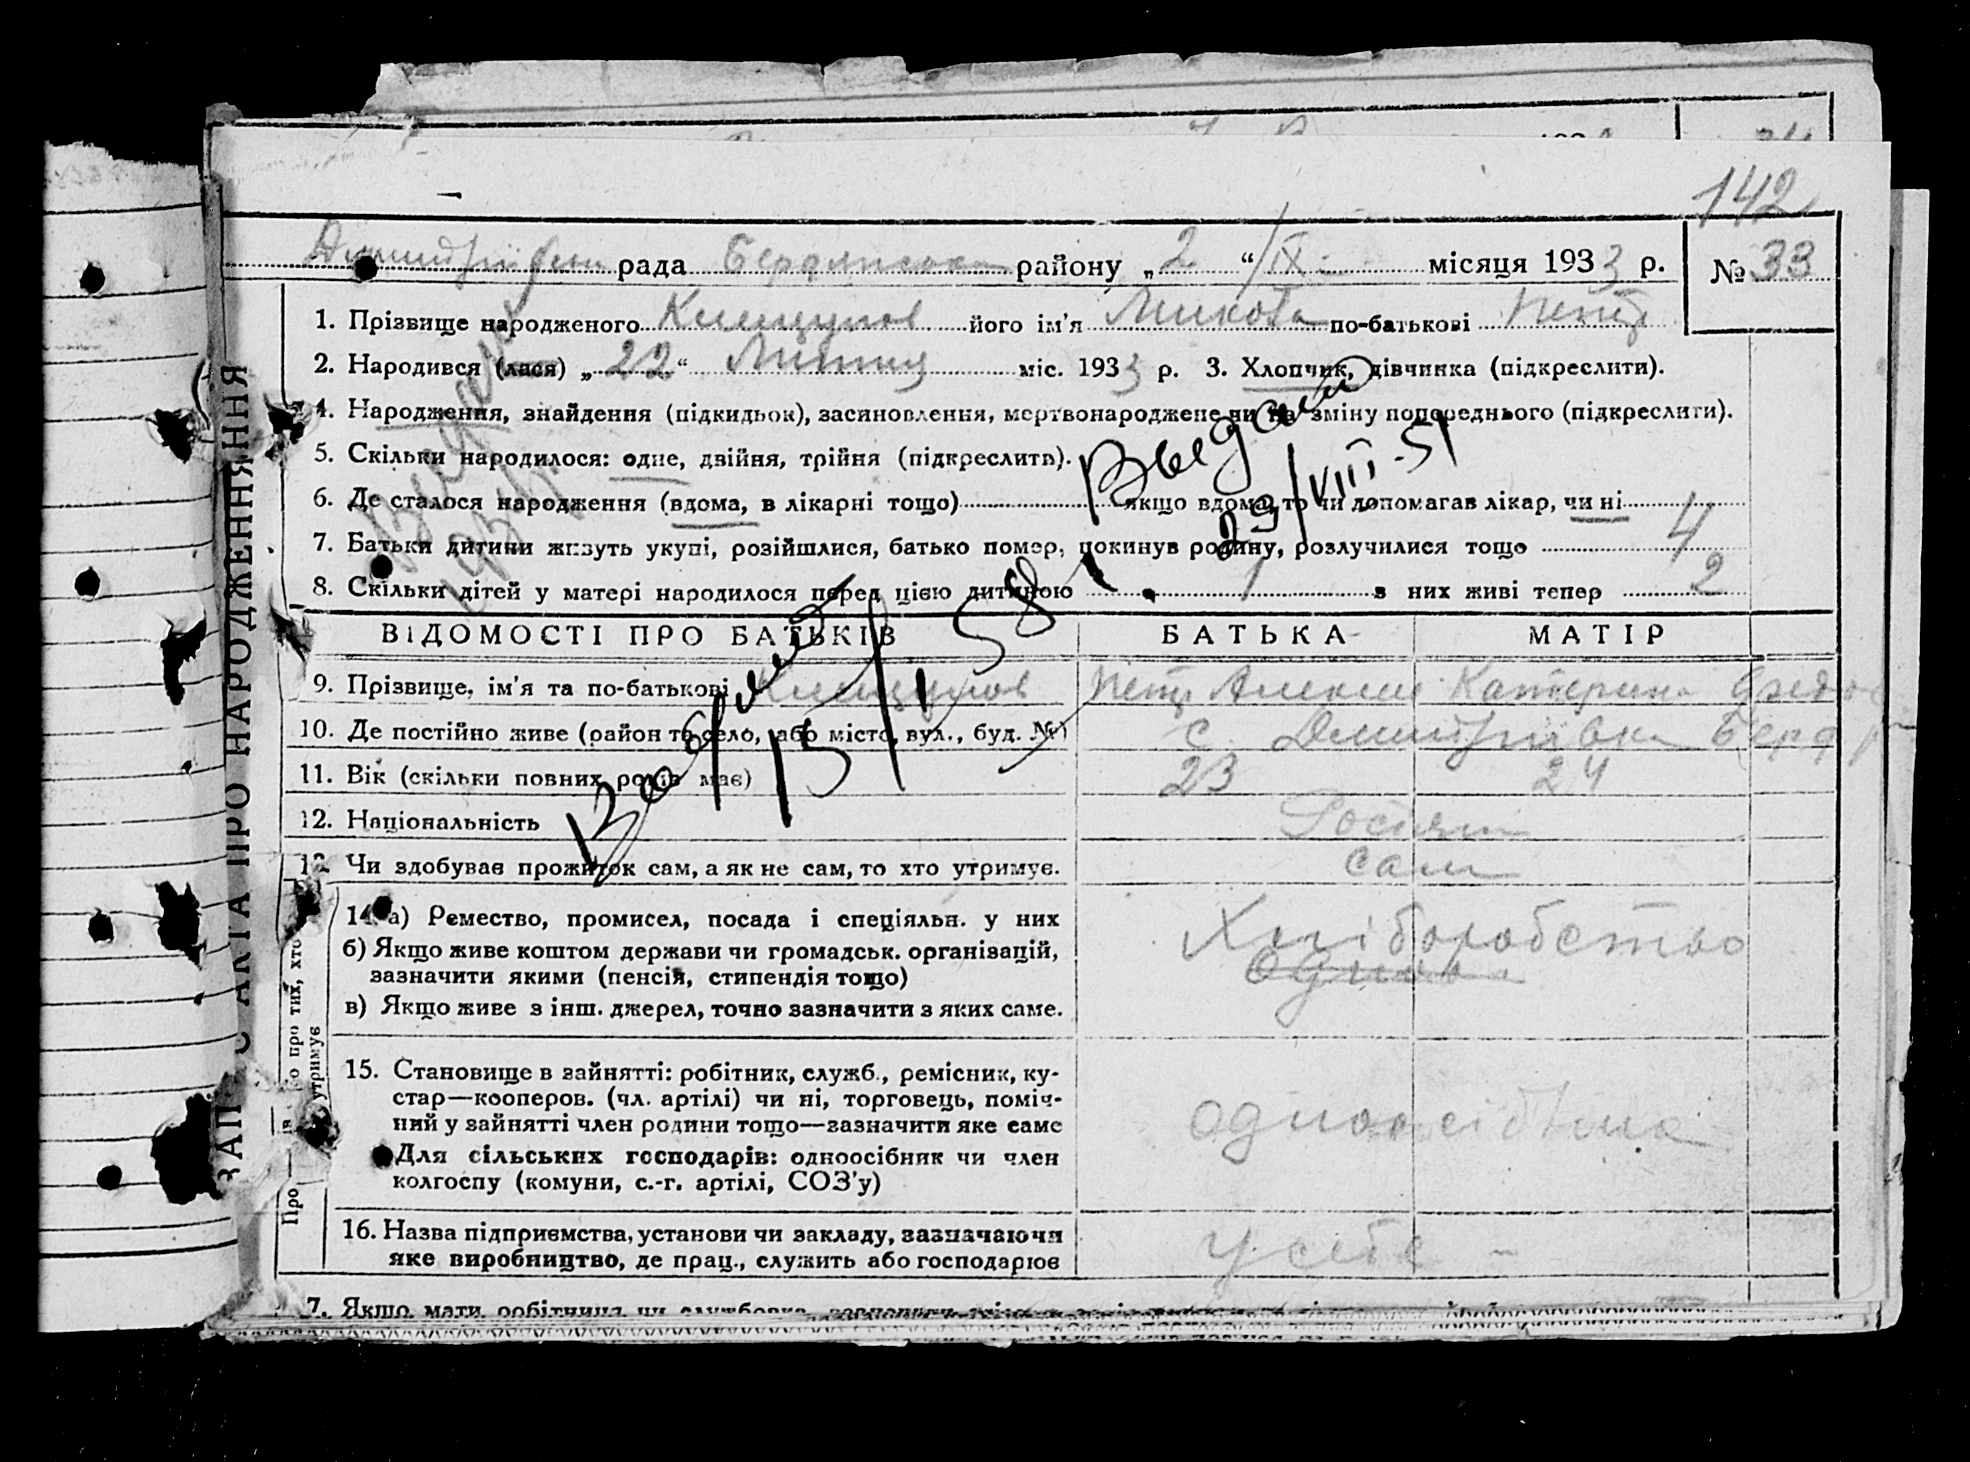 142
рада Бердянська району „2“ /IX місяця 1933 р. № 33
1. Прізвище народженого його ім'я Микола по-батькові Петр
2. Народився (лася) „22“ Липня міс. 1933 р. 3. Хлопчик, дівчинка (підкреслити).
4. Народження, знайдення (підкидьок), засиновлення, мертвонароджене чи на зміну попереднього (підкреслити).
5. Скільки народилося: одне, двійня, трійня (підкреслити).
Выдан
29/VIII-51
6. Де сталося народження (вдома, в лікарні тощо) якщо вдома, то чи допомагав лікар, чи ні
7. Батьки дитини живуть укупі, розійшлися, батько помер, покинув родину, розлучилися тощо 4
8. Скільки дітей у матері народилося перед цією дитиною 1 з них живі тепер 2
ВІДОМОСТІ ПРО БАТЬКІВ БАТЬКА МАТІР
9. Прізвище, ім'я та по-батькові Петр Алексее Катерина Федо
10. Де постійно живе (район та село, або місто, вул., буд. №) с. Дмитрівка Берд р
11. Вік (скільки повних років має) 23 24
15/1 58
12. Національність Росіяни
13. Чи здобував прожиток сам, а як не сам, то хто утримує. сам
14. а) Ремество, промисел, посада і спеціяльн. у них Хліборобство
б) Якщо живе коштом держави чи громадськ. організацій,
зазначити якими (пенсія, стипендія тощо)
в) Якщо живе з інш. джерел, точно зазначити з яких саме.
15. Становище в зайнятті: робітник, служб., ремісник, ку-
стар—кооперов. (чл. артілі) чи ні, торговець, поміч-
ний у зайнятті член родини тощо—зазначити яке саме
Для сільських господарів: одноосібник чи член
колгоспу (комуни, с.-г. артілі, СОЗ'у)
16. Назва підприємства, установи чи закладу, зазначаючи у себе -
яке виробництво, де прац., служить або господарює
7. Якщо мати робітниця чи службовка,
ЗАПИС АКТА ПРО НАРОДЖЕННЯ
про тих, хто
утримує